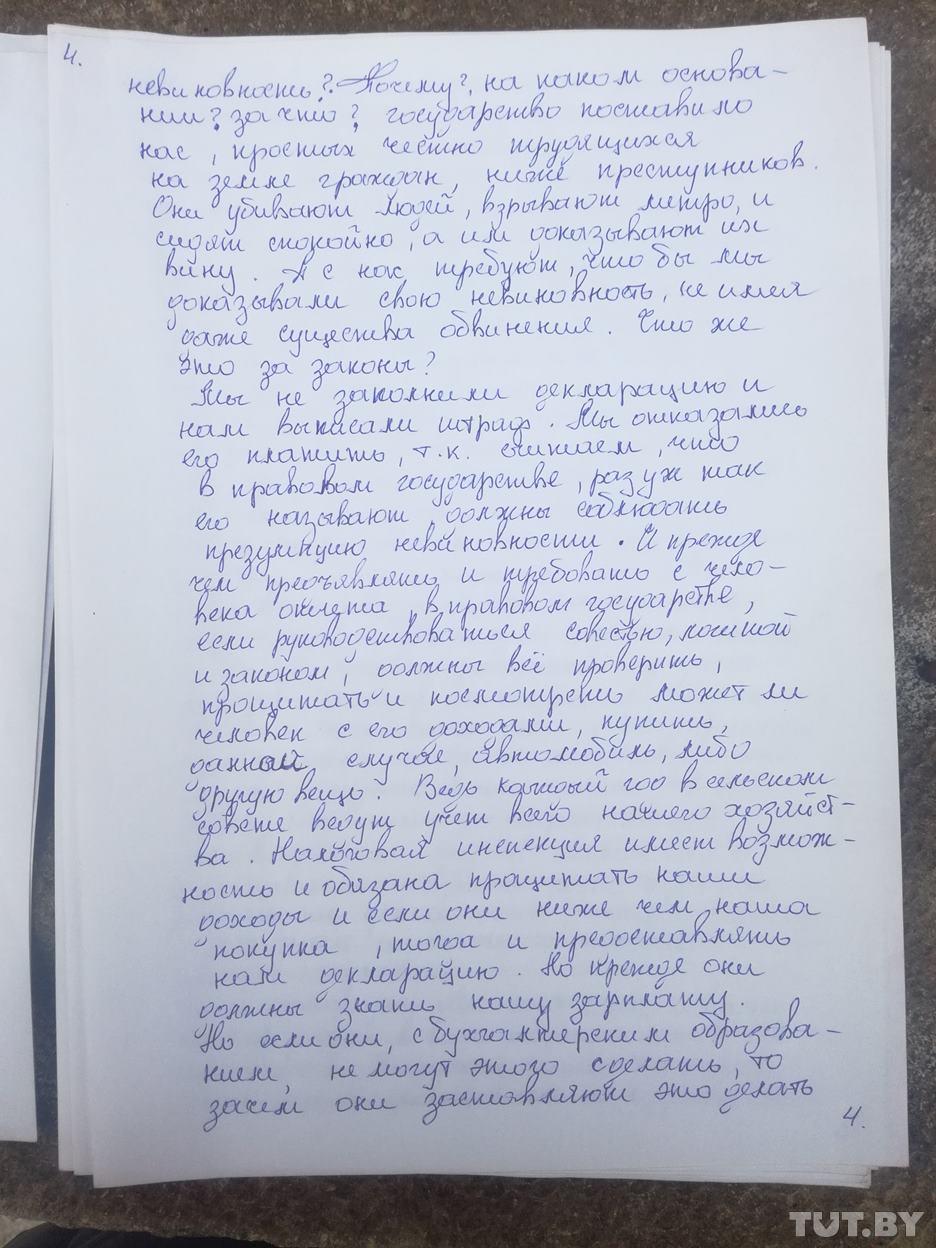 4.
невиновность? Почему?, на каком основа-
нии? за что? государство поставило
нас, простых честно трудящихся
на земле граждан, ниже преступников.
Они убивают людей, взрывают метро, и
сидят спокойно, а им доказывают их
вину. А с нас требуют, что бы мы
доказывали свою невиновность, не имея
даже существа обвинения. Что же
это за законы?
Мы не заполнили декларацию и
нам выписали штраф. Мы отказались
его платить, т.к. считаем, что
в правовом государстве, раз уж так
его называют, должны соблюдать
презумпцию невиновности. И прежде
чем предъявлять и требовать с чело-
века отчета, в правовом государстве,
если руководствоваться совестью, логикой
и законом, должны всё проверить,
просщитать и посмотреть может ли
человек с его доходами, купить,
данной случае, автомобиль, либо
другую вещь. Ведь каждый год в сельском
совете ведут учет всего нашего хозяйст-
ва. Налоговая инспекция имеет возмож-
ность и обязана просщитать наши
доходы и если они ниже чем наша
покупка, тогда и предоставлять
нам декларацию. Но прежде они
должны знать нашу зарплату.
Но если они, с бухгалтерским образова-
нием, не могут этого сделать, то
зачем они заставляют это делать
4.
TUT.BY